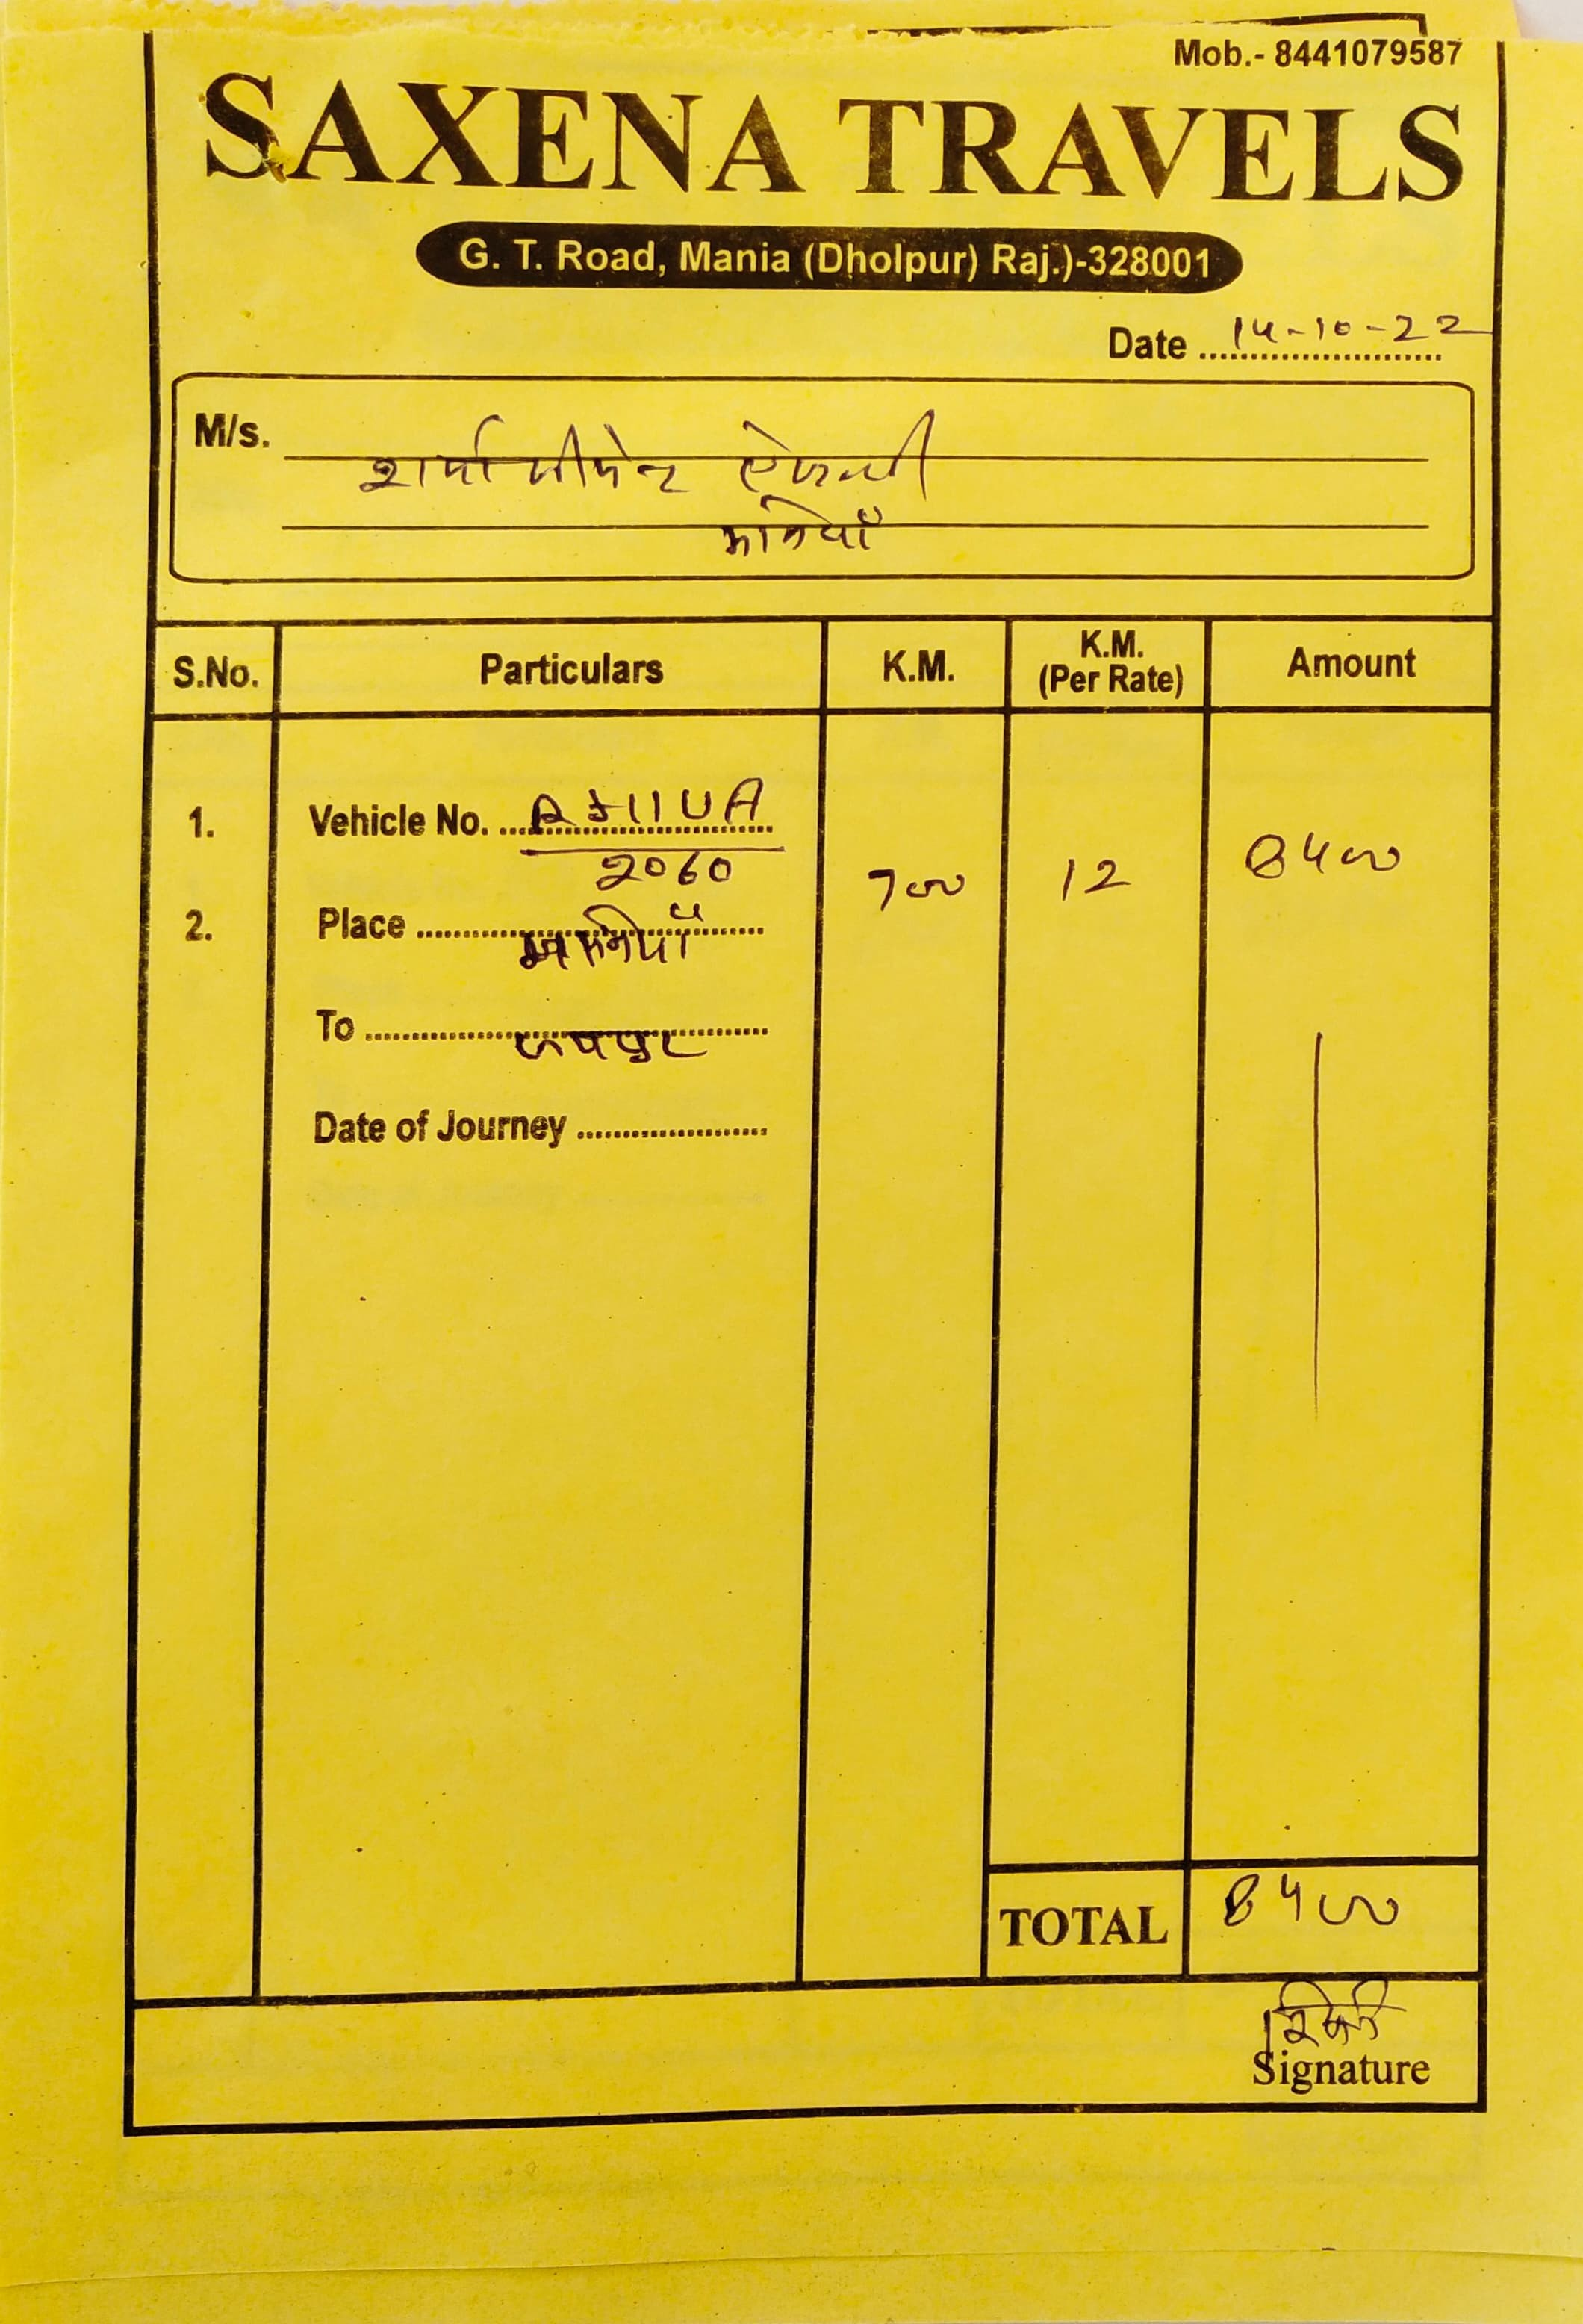 Mob.- 8441079587
SAXENA TRAVELS
G. T. Road, Mania (Dholpur) Raj.)-328001
Date 14-10-22
M/s. शर्मा सीमेन्ट ऐजेन्सी
मनियाँ
S.No. Particulars K.M. K.M. (Per Rate) Amount
1. Vehicle No. RJ11UA
2060 700 12 8400
2. Place मनियाँ
To जयपुर
Date of Journey
TOTAL 8400
Signature